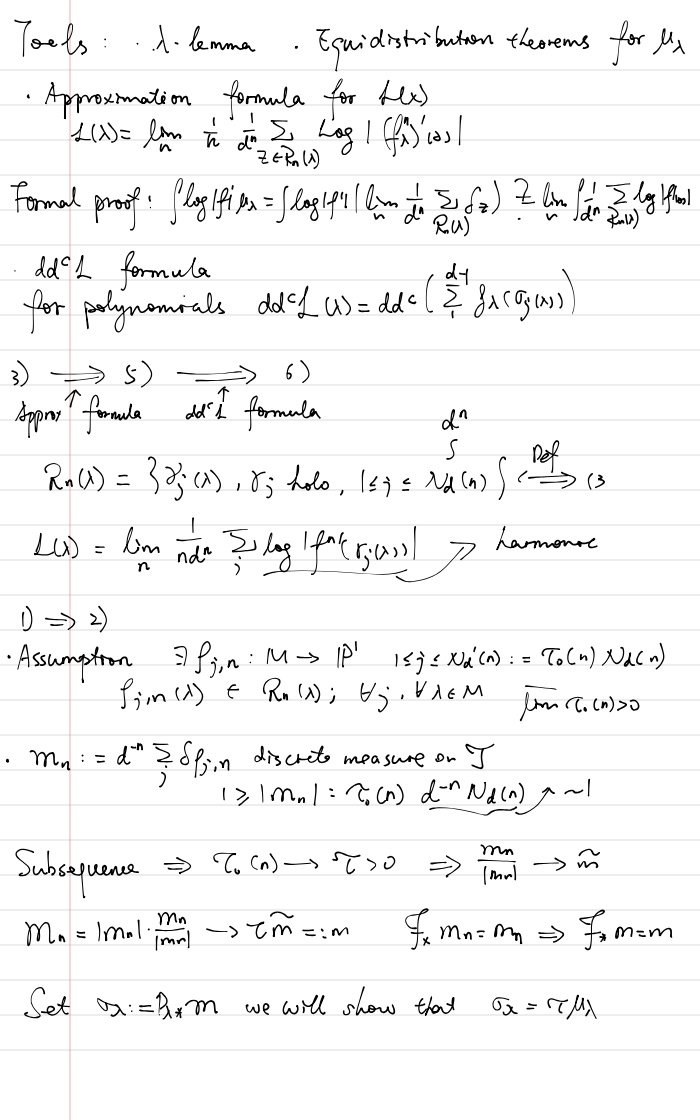 Tools : · λ-lemma · Equidistribution theorems for μ_λ
· Approximation formula for L(λ)
L(λ) = lim_n 1/n 1/d^n Σ_{z∈R_n(λ)} Log |(f_λ^n)'(z)|
Formal proof : ∫log|f'| μ_λ = ∫log|f'| (lim_n 1/d^n Σ_{R_n(λ)} δ_z) ?= lim_n ∫ 1/d^n Σ_{R_n(λ)} log|f'(z)|
· dd^c L formula
for polynomials dd^c L(λ) = dd^c ( Σ_1^{d-1} g_λ(σ_j(λ)) )
3) ⟹ 5) ⟹ 6)
Approx formula dd^c L formula
d^n
R_n(λ) = { γ_j(λ), γ_j holo, 1 ≤ j ≤ N_d(n) } ⟺ (3
Def
L(λ) = lim_n 1/nd^n Σ_j log |f^n'(γ_j(λ))| ↗ harmonic
1) ⇒ 2)
· Assumption ∃ ρ_{j,n} : M → P^1 1 ≤ j ≤ N_d'(n) := τ_0(n) N_d(n)
ρ_{j,n}(λ) ∈ R_n(λ) ; ∀j, ∀λ∈M \overline{lim} τ_0(n) > 0
· m_n := d^{-n} Σ_j δ_{ρ_{j,n}} discrete measure on J
1 ≥ |m_n| : τ_0(n) d^{-n} N_d(n) ↗ ~1
Subsequence ⇒ τ_0(n) → τ > 0 ⇒ m_n/|m_n| → m̃
m_n = |m_n| · m_n/|m_n| → τ m̃ =: m F_* m_n = m_n ⇒ F_* m = m
Set σ_λ := P_{λ*} m we will show that σ_λ = τ μ_λ